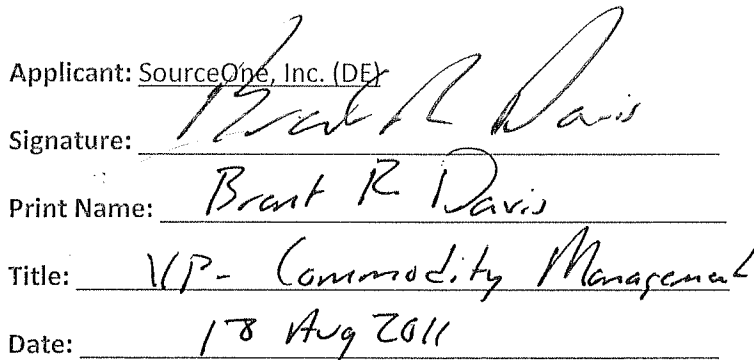 Applicant: SourceOne, Inc. (DE)
Signature: Brant R Davis
Print Name: Brant R Davis
Title: VP- Commodity Management
Date: 18 Aug 2011